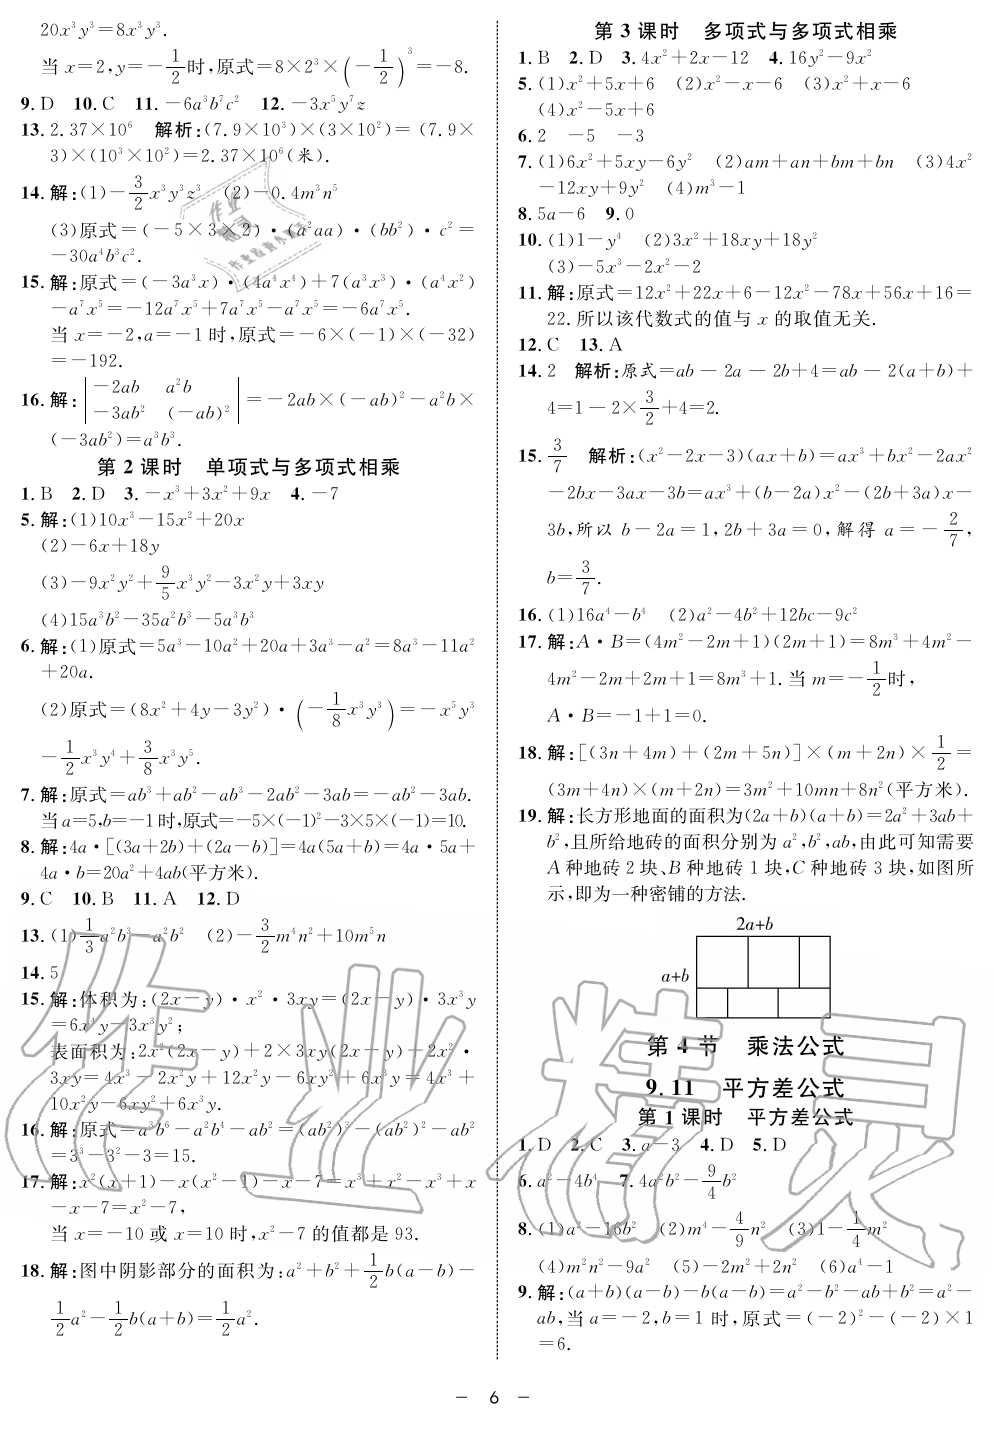 20x³y³=8x³y³.
当 x=2,y=-1/2时,原式=8×2³×(-1/2)³=-8.
9.D 10.C 11.-6a³b⁷c² 12.-3x⁵y⁷z
13.2.37×10⁶ 解析:(7.9×10³)×(3×10²)=(7.9×
3)×(10³×10²)=2.37×10⁶(米).
14.解:(1)-3/2x³y³z³ (2)-0.4m³n⁵
(3)原式=(-5×3×2)·(a²aa)·(bb²)·c²=
-30a⁴b³c².
15.解:原式=(-3a³x)·(4a⁴x⁴)+7(a³x³)·(a⁴x²)
-a⁷x⁵=-12a⁷x⁵+7a⁷x⁵-a⁷x⁵=-6a⁷x⁵.
当 x=-2,a=-1时,原式=-6×(-1)×(-32)
=-192.
16.解:|-2ab a²b
-3ab² (-ab)²|=-2ab×(-ab)²-a²b×
(-3ab²)=a³b³.
第 2 课时 单项式与多项式相乘
1.B 2.D 3.-x³+3x²+9x 4.-7
5.解:(1)10x³-15x²+20x
(2)-6x+18y
(3)-9x²y²+9/5x³y²-3x²y+3xy
(4)15a³b²-35a²b³-5a³b³
6.解:(1)原式=5a³-10a²+20a+3a³-a²=8a³-11a²
+20a.
(2)原式=(8x²+4y-3y²)·(-1/8x³y³)=-x⁵y³
-1/2x³y⁴+3/8x³y⁵.
7.解:原式=ab³+ab²-ab³-2ab²-3ab=-ab²-3ab.
当a=5,b=-1时,原式=-5×(-1)²-3×5×(-1)=10.
8.解:4a·[(3a+2b)+(2a-b)]=4a(5a+b)=4a·5a+
4a·b=20a²+4ab(平方米).
9.C 10.B 11.A 12.D
13.(1)1/3a²b³-a²b² (2)-3/2m⁴n²+10m⁵n
14.5
15.解:体积为:(2x-y)·x²·3xy=(2x-y)·3x³y
=6x⁴y-3x³y²;
表面积为:2x²(2x-y)+2×3xy(2x-y)+2x²·
3xy=4x³-2x²y+12x²y-6xy²+6x³y=4x³+
10x²y-6xy²+6x³y.
16.解:原式=a³b⁶-a²b⁴-ab²=(ab²)³-(ab²)²-ab²
=3³-3²-3=15.
17.解:x²(x+1)-x(x²-1)-x-7=x³+x²-x³+x
-x-7=x²-7,
当 x=-10 或 x=10 时,x²-7 的值都是 93.
18.解:图中阴影部分的面积为:a²+b²+1/2b(a-b)-
1/2a²-1/2b(a+b)=1/2a².
第 3 课时 多项式与多项式相乘
1.B 2.D 3.4x²+2x-12 4.16y²-9x²
5.(1)x²+5x+6 (2)x²-x-6 (3)x²+x-6
(4)x²-5x+6
6.2 -5 -3
7.(1)6x²+5xy-6y² (2)am+an+bm+bn (3)4x²
-12xy+9y² (4)m³-1
8.5a-6 9.0
10.(1)1-y⁴ (2)3x²+18xy+18y²
(3)-5x³-2x²-2
11.解:原式=12x²+22x+6-12x²-78x+56x+16=
22.所以该代数式的值与 x 的取值无关.
12.C 13.A
14.2 解析:原式=ab-2a-2b+4=ab-2(a+b)+
4=1-2×3/2+4=2.
15.3/7 解析:(x²-2x-3)(ax+b)=ax³+bx²-2ax²
-2bx-3ax-3b=ax³+(b-2a)x²-(2b+3a)x-
3b,所以 b-2a=1,2b+3a=0,解得 a=-2/7,
b=3/7.
16.(1)16a⁴-b⁴ (2)a²-4b²+12bc-9c²
17.解:A·B=(4m²-2m+1)(2m+1)=8m³+4m²-
4m²-2m+2m+1=8m³+1.当 m=-1/2时,
A·B=-1+1=0.
18.解:[(3n+4m)+(2m+5n)]×(m+2n)×1/2=
(3m+4n)×(m+2n)=3m²+10mn+8n²(平方米).
19.解:长方形地面的面积为(2a+b)(a+b)=2a²+3ab+
b²,且所给地砖的面积分别为 a²,b²,ab,由此可知需要
A 种地砖 2 块、B 种地砖 1 块,C 种地砖 3 块,如图所
示,即为一种密铺的方法.
2a+b
a+b
第 4 节 乘法公式
9.11 平方差公式
第 1 课时 平方差公式
1.D 2.C 3.a-3 4.D 5.D
6.a²-4b⁴ 7.4a²b²-9/4b²
8.(1)a²-16b² (2)m⁴-4/9n² (3)1-1/4m²
(4)m²n²-9a² (5)-2m²+2n² (6)a⁴-1
9.解:(a+b)(a-b)-b(a-b)=a²-b²-ab+b²=a²-
ab,当 a=-2,b=1 时,原式=(-2)²-(-2)×1
=6.
- 6 -
作业精灵